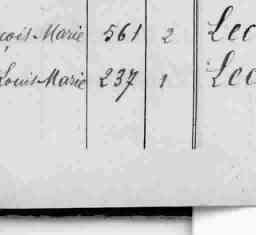 çois Marie 561 2 Lec
Louis Marie 237 1 Lec